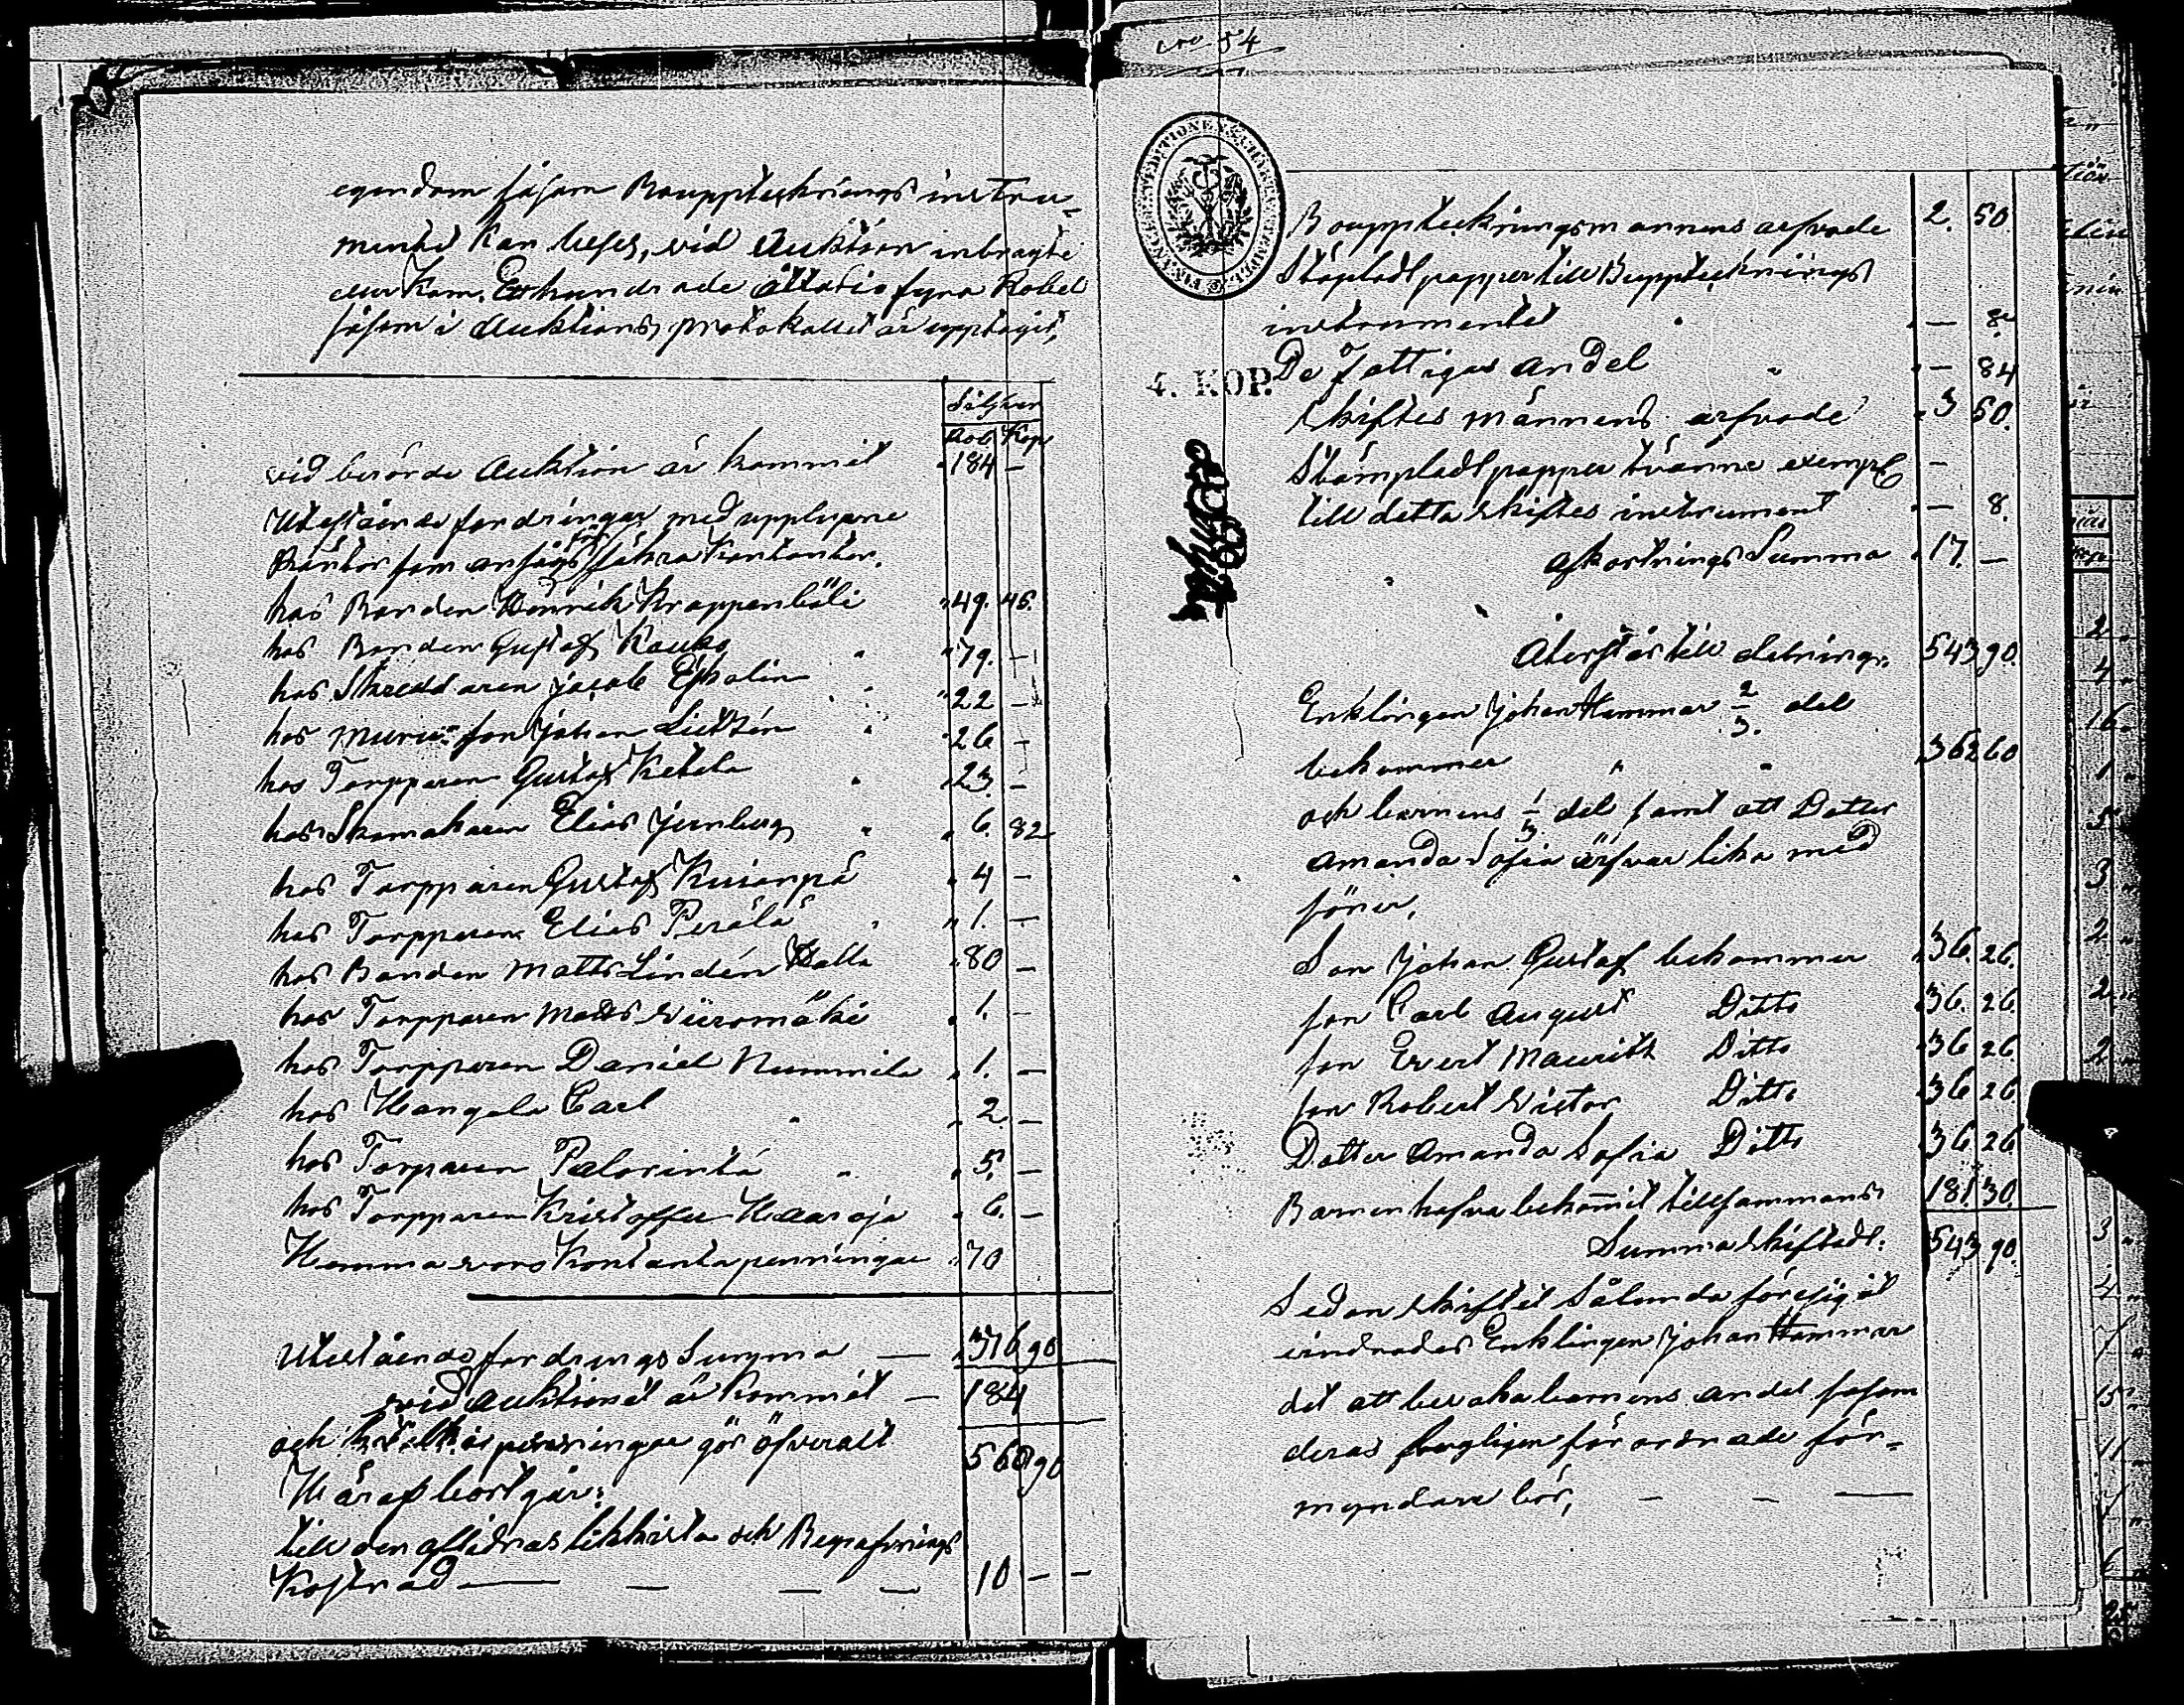 egendom såsom Bouppteckrings instru-
mentet kan lufes, vid Auktion inbragte
Etthundrade åttatio fyra Robel
såsom i Auktions protokollet är upptagit,
Silfver
Rob Kop
vid berörde Auktion är kommit 184 —
Utestående fordringar med upplupne
Räntor som ansågs för säkra Kontanter.
hos Bonden Henrik Krappenböle " 49. 45.
hos Bonden Gustaf Kauko " 79. —
hos Skreddaren Jacob Eskolin " 22 —
hos Johan Lietzén " 26 —
hos Torpparen Gustaf Ketola " 23. —
hos Skomakaren Elias Jernberg " 6. 82
hos Torpparen Gustaf " 4 —
hos Torpparen Elias Perälä " 1. —
hos Bonden Matts Lindén " 80 —
hos Torpparen Matts Wiiromäki " 1. —
hos Torpparen Daniel Nummila " 1. —
hos Hangola Carl " 2. —
hos Torparen Palorinta " 5. —
hos Torpparen Kristoffer Haaroja " 6. —
Hemma voro Kontanta penningar " 70
Utestående fordrings Summa — 376 90
vid auktionet är kommit — 184
och penningar gör öfveralt 560 90
Häraf bortgår:
till den aflidnas likkista och Begrafnings
Kostnad — — — — 10 — —
No 54
4. KOP.
Bouppteckningsmannens arfvode 2. 50.
Stäpladt papper till Bupptecknings
instrumentet " — 8.
De fattigas andel " — 84
Skiftes männens arfvode " 3 50.
Stämpladt papper tvänne exempl —
till detta skiftes instrument " — 8.
Afkortnings Summa 17. —
Återstår till delning. 543 90.
Enklingen Johan Hammar 2/3. del
bekommer " " 362 60
och barnens 1/3 del samt att Dotter
Amanda Sofia ärfvar lika med
söner,
Son Johan Gustaf bekommer " 36. 26.
son Carl August Ditto " 36. 26.
son Evert Mauritz Ditto " 36 26.
son Robert Victor Ditto " 36 26
Dotter Amanda Sofia Ditto " 36 26
Barnen hafva bekomit tillsammans 181 30.
Summa skiftadt: 543 90
Sedan skiftet sålunda föregigit
Enklingen Johan Hammar
det att bevaka barnens andel såsom
deras förordnade för-
myndare bör, — — —